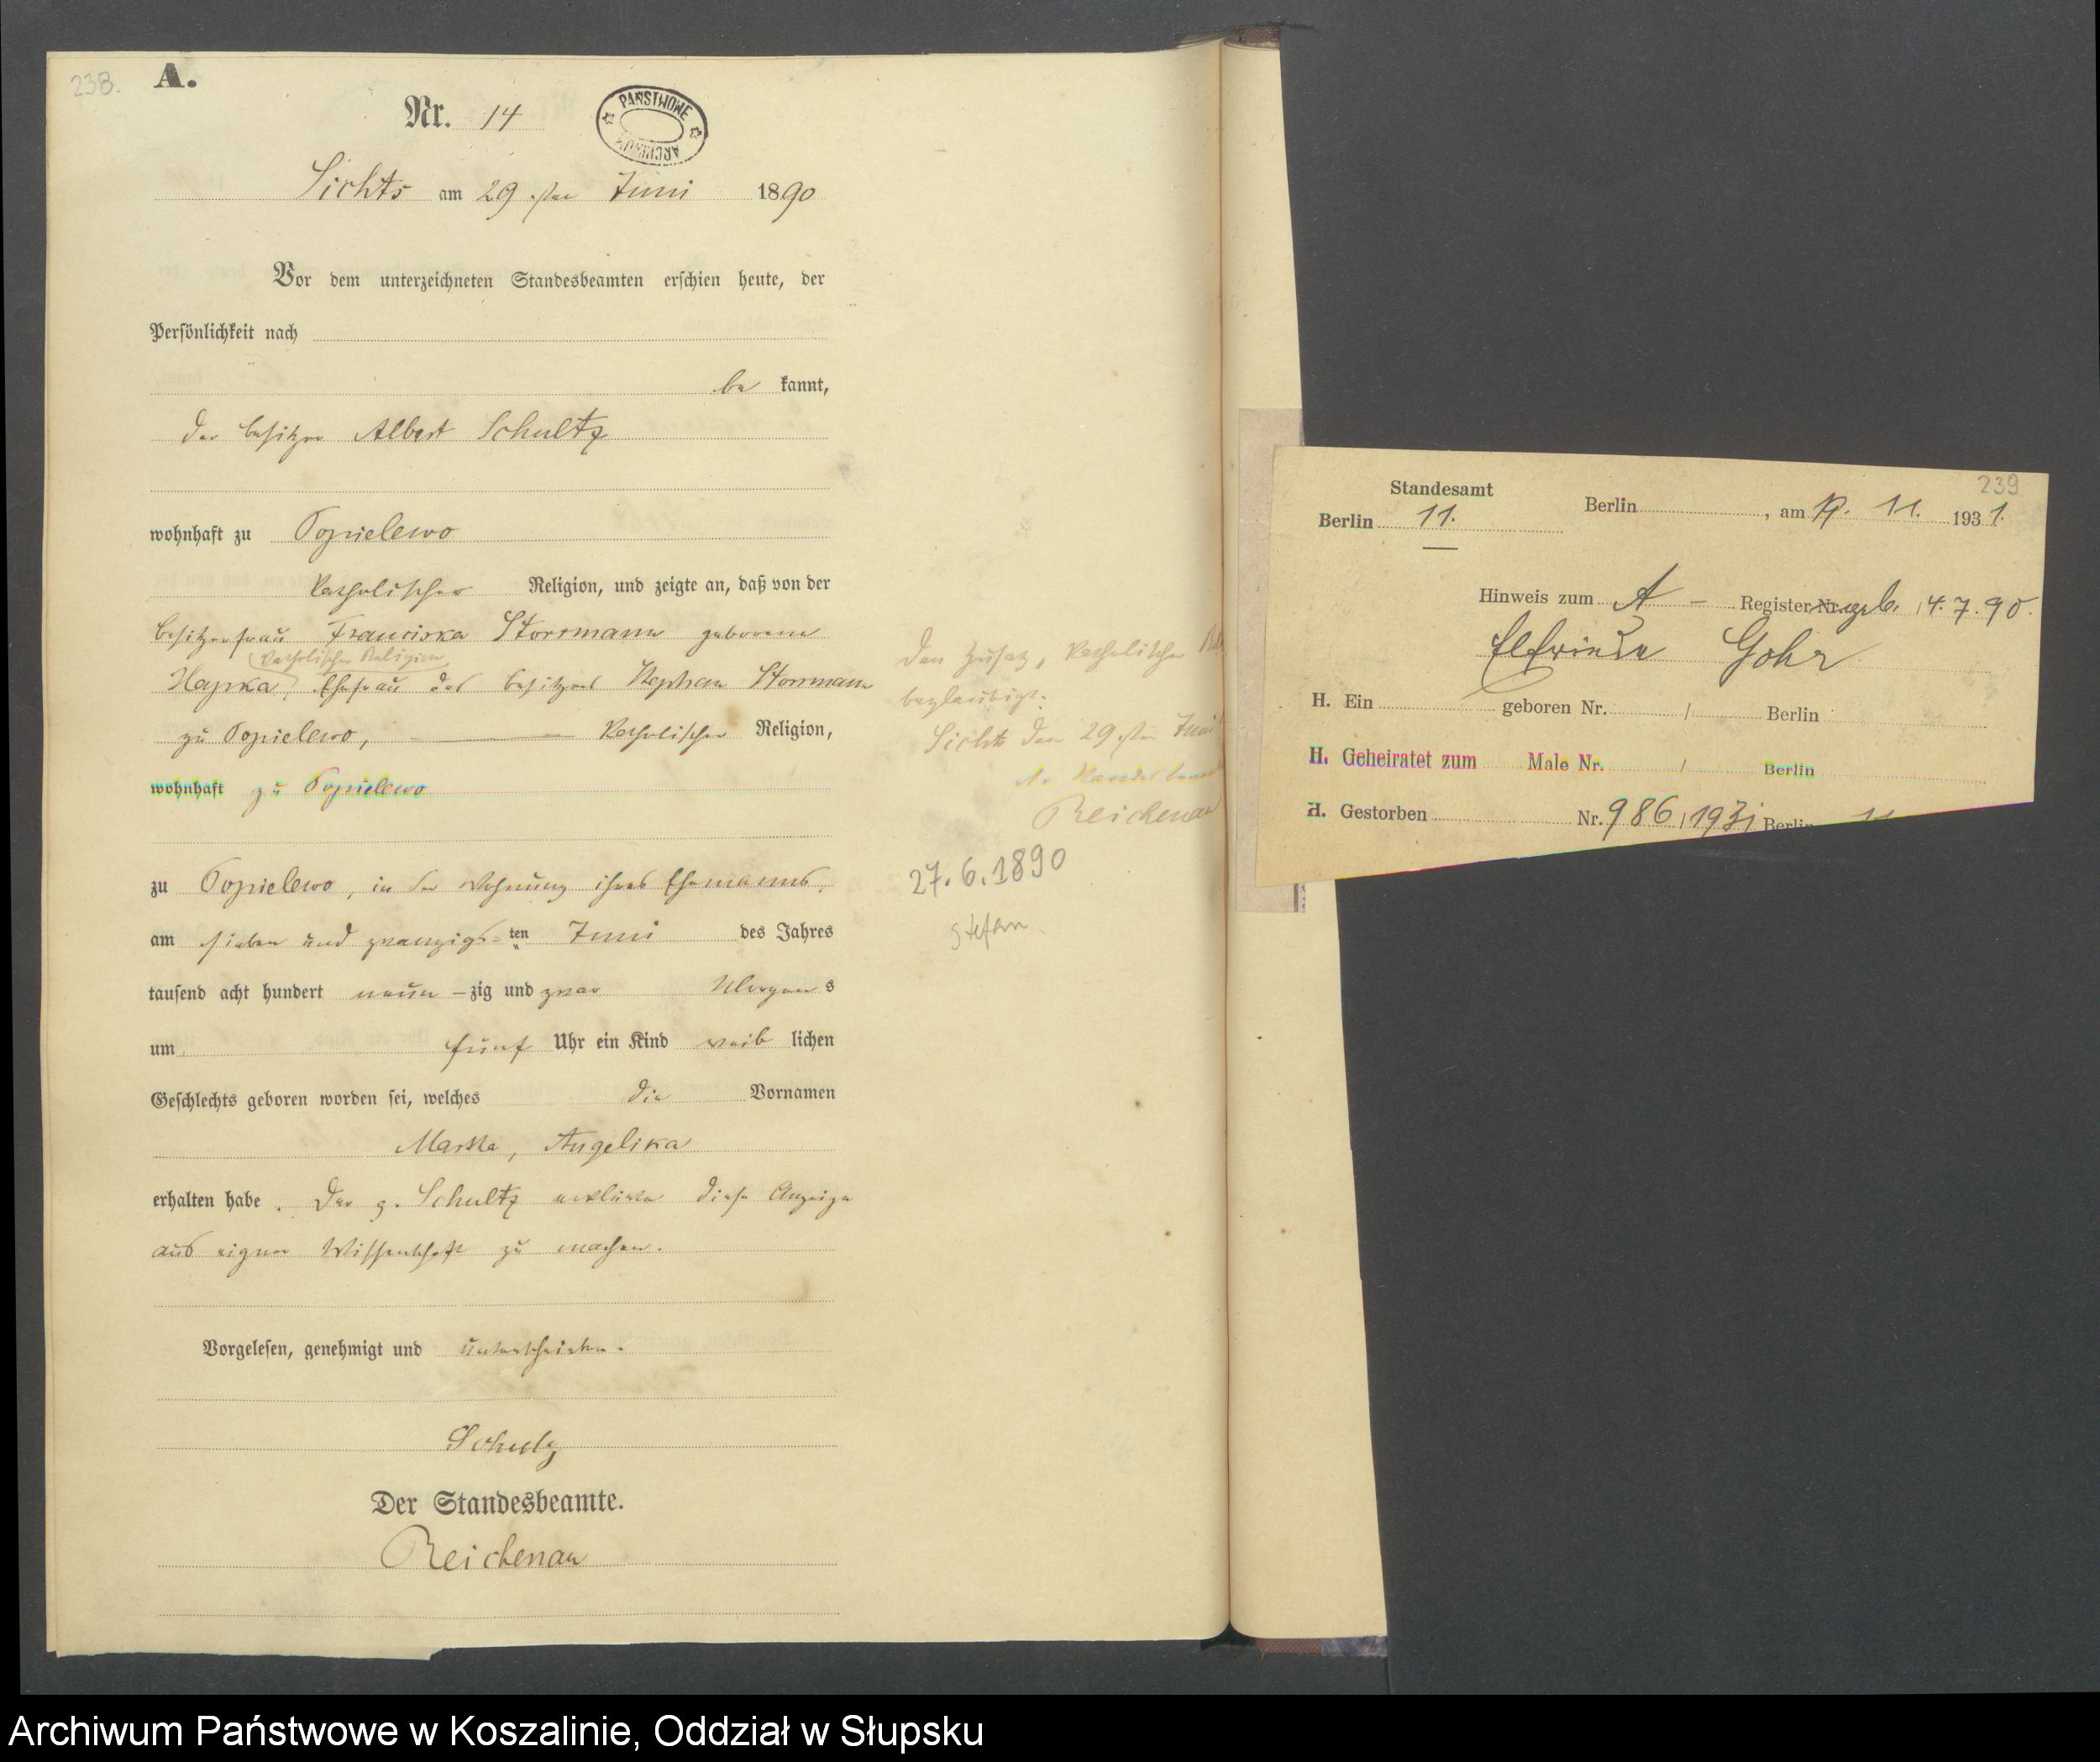 238.
A.
Nr. 14
PAŃSTWOWE ARCHIWUM
Sichts am 29 sten Juni 1890
Vor dem unterzeichneten Standesbeamten erschien heute, der
Persönlichkeit nach
be kannt,
der Besitzer Albert Schultz
wohnhaft zu Popielewo
katholischer Religion, und zeigte an, daß von der
Besitzerfrau Franciska Storrmann geborene
katholischer Religion
Hapka, Ehefrau des Besitzers Stephan Storrmann
zu Popielewo, katholischer Religion,
wohnhaft zu Popielewo
zu Popielewo, in der Wohnung ihres Ehemannes,
am sieben und zwanzigs-ten Juni des Jahres
tausend acht hundert neun-zig und zwar Morgens
um fünf Uhr ein Kind weib lichen
Geschlechts geboren worden sei, welches die Vornamen
Martha, Angelika
erhalten habe. Der p. Schultz erklärte diese Anzeige
aus eigner Wissenschaft zu machen.
Vorgelesen, genehmigt und unterschrieben.
Schulz
Der Standesbeamte.
Reichenau
Den Zusatz, katholischer
beglaubigt:
Sichts den 29 sten Juni
Reichenau
27.6.1890
Stefan
239
Standesamt
Berlin 11.
Berlin , am 11. 1931.
Hinweis zum A - Register Nr. geb. 14.7.90.
Elfriede Gohr
H. Ein geboren Nr. / Berlin
H. Geheiratet zum Male Nr. / Berlin
H. Gestorben Nr. 986/1931 Berlin 11
Archiwum Państwowe w Koszalinie, Oddział w Słupsku